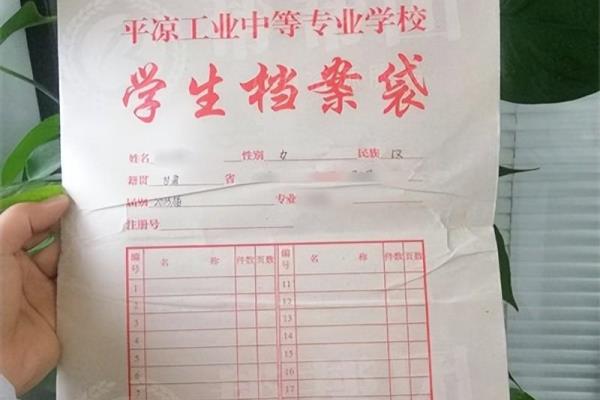 平凉工业中等专业学校
学生档案袋
姓名 性别 女 民族 汉
籍贯 甘肃 省
届别 专业
注册号
编号 名称 件数 页数 编号 名称 件数 页数
1 11
2 12
3 13
4 14
5 15
6 16
7 17